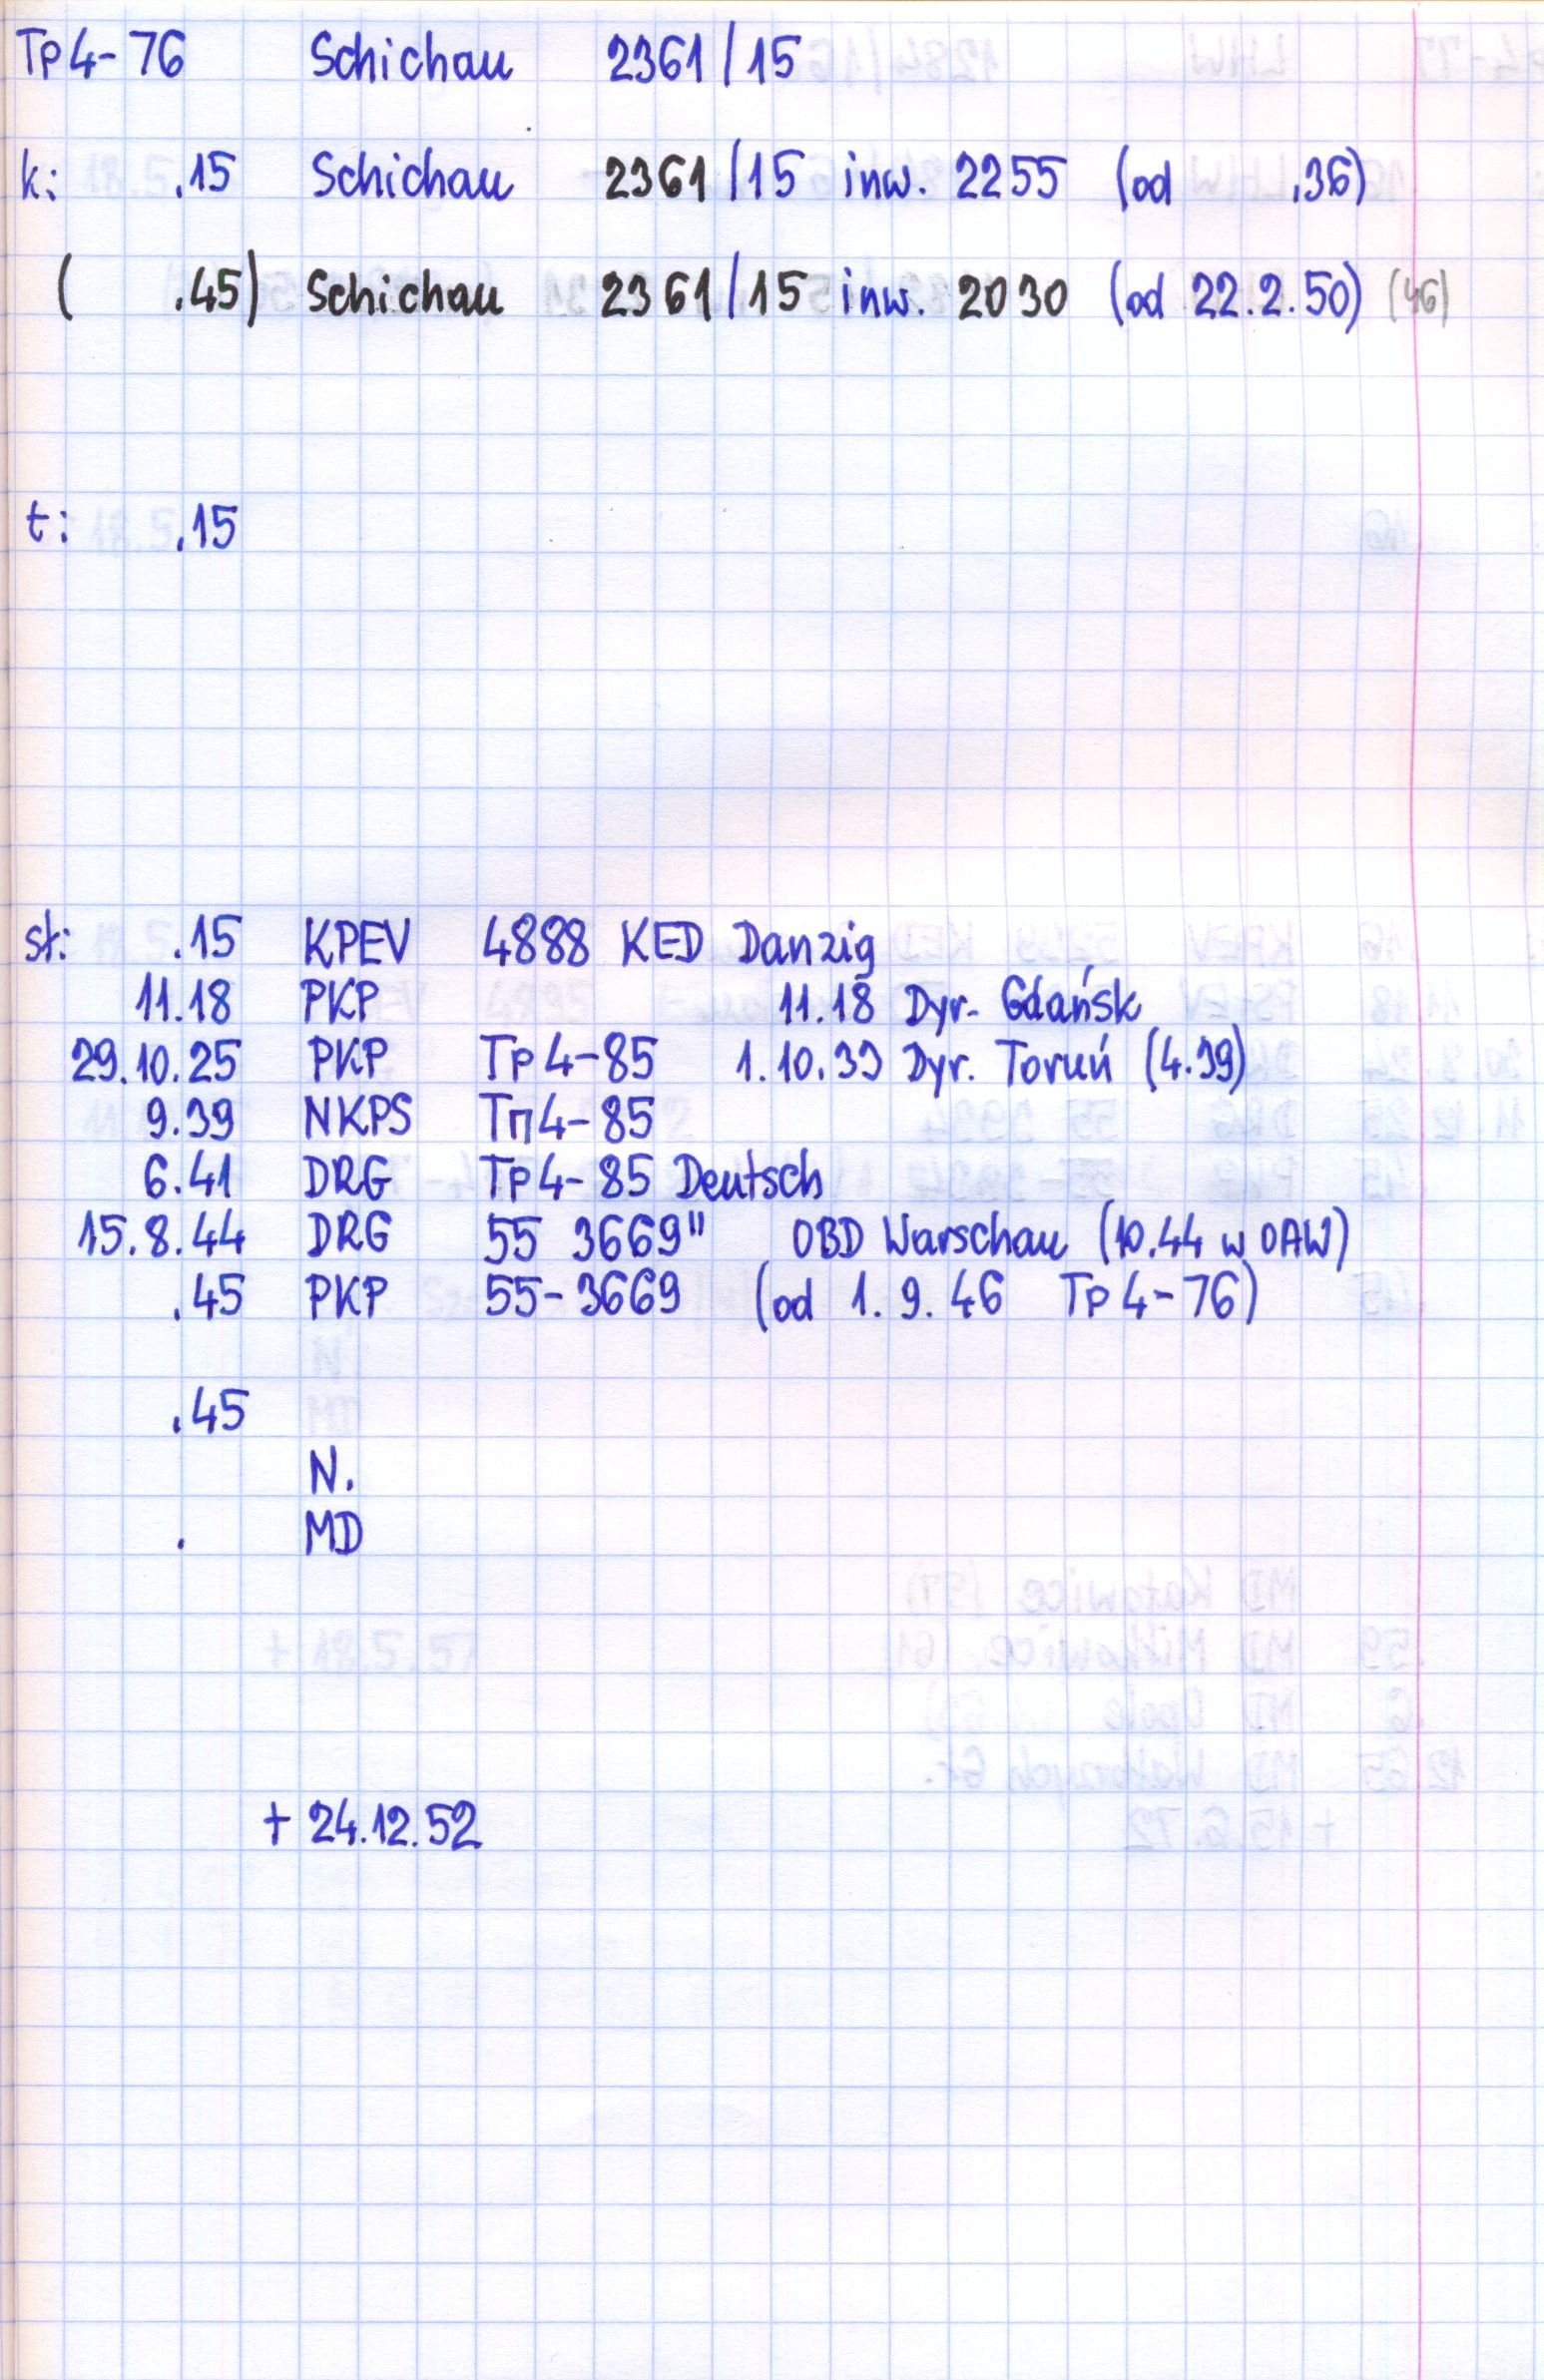 Tp4-76 Schichau 2361/15
k: .15 Schichau 2361/15 inw. 2255 (od .36)
( .45) Schichau 2361/15 inw. 2030 (od 22.2.50) (46)
t: .15
st: .15 KPEV 4888 KED Danzig
11.18 PKP 11.18 Dyr. Gdańsk
29.10.25 PKP Tp4-85 1.10.33 Dyr. Toruń (4.39)
9.39 NKPS Tп4-85
6.41 DRG Tp4-85 Deutsch
15.8.44 DRG 55 3669" OBD Warschau (10.44 w OAW)
.45 PKP 55-3669 (od 1.9.46 Tp4-76)
.45
N.
. MD
+ 24.12.52